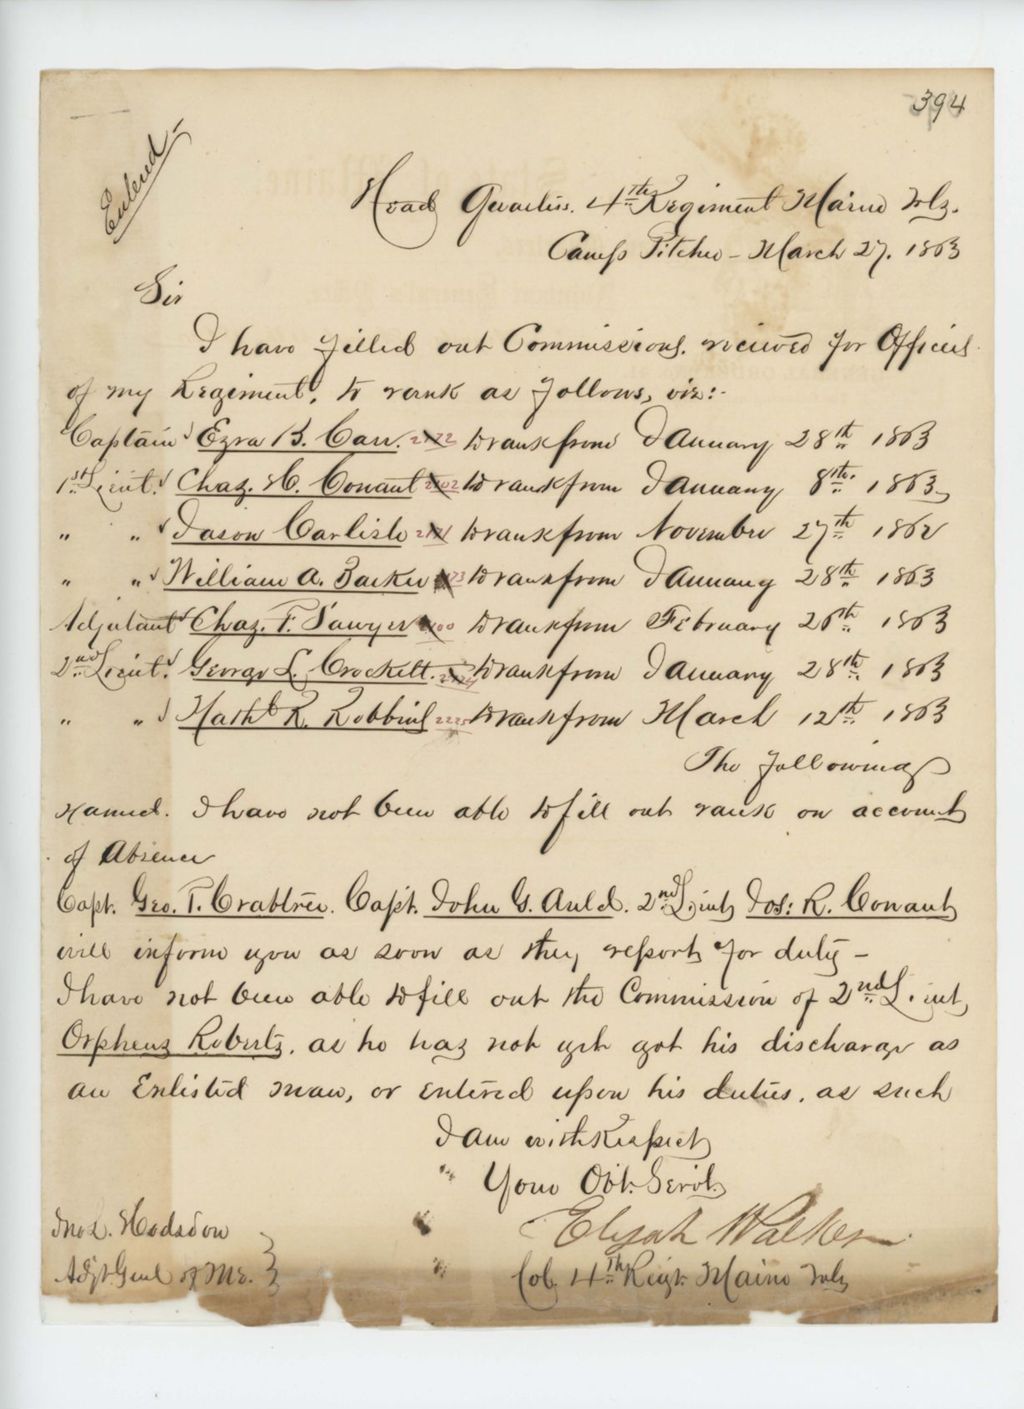 394
Entered
Head Quarters. 4th Regiment Maine Vols.
Camp Pitcher - March 27. 1863
Sir
I have filled out Commissions. recieved for Officers
of my Regiment, to rank as follows, viz:-
Captain Ezra B. Carr. 2172 to rank from January 28th 1863
1st Lieut. Chas. H. Conant 2202 to rank from January 8th. 1863
" " Jason Carlisle to rank from November 27th 1862
" " William A. Barker to rank from January 28th 1863
Adjutant Chas. F. Sawyer to rank from February 26th 1863
2nd Lieut. George L. Crockett. to rank from January 28th 1863
" " Nathl. R. Robbins 2225 to rank from March 12th 1863
The following
named. I have not been able to fill out rank on account
of Absence
Capt. Geo. T. Crabtree. Capt. John G. Auld. 2nd Lieut Jos: R. Conant
will inform you as soon as they report for duty -
I have not been able to fill out the Commission of 2nd Lieut
Orpheus Roberts. as he has not yet got his discharge as
an Enlisted man, or entered upon his duties. as such
I am with Respect
" Your Obt. Servt.
Jno. L. Hodsdon
" Elijah Walker
Adjt. Genl of ME.
" Col 4th Regt. Maine Vols